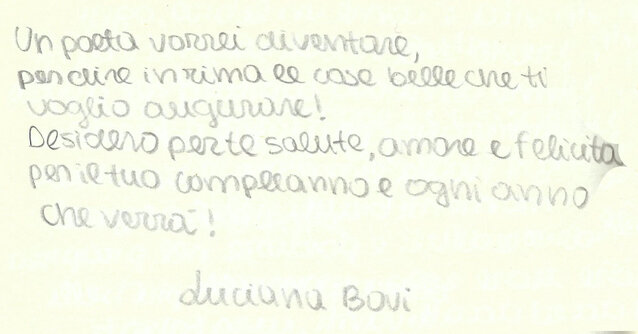 Un poeta vorrei diventare,
per dire in rima le cose belle che ti
voglio augurare!
Desidero per te salute, amore e felicità
per il tuo compleanno e ogni anno
che verrà!
Luciana Bovi